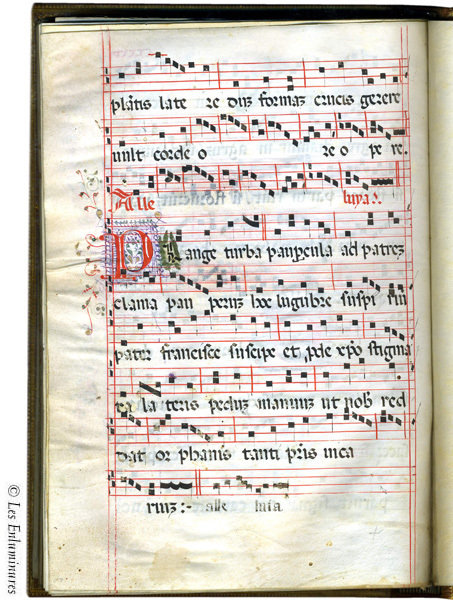 plātis late re diuz formaz crucis gerere
uult corde o re o pe re.
Alle luya:.
Plange turba paupercula ad patrez
clama pau peruz hec lugubre suspi riuz
pater francisce suscipe et pde xpo stigma
ta la teris peduz manuuz ut nob red
dat or phanis tanti pris uica
riuz:- alle luia
© Les Enluminures